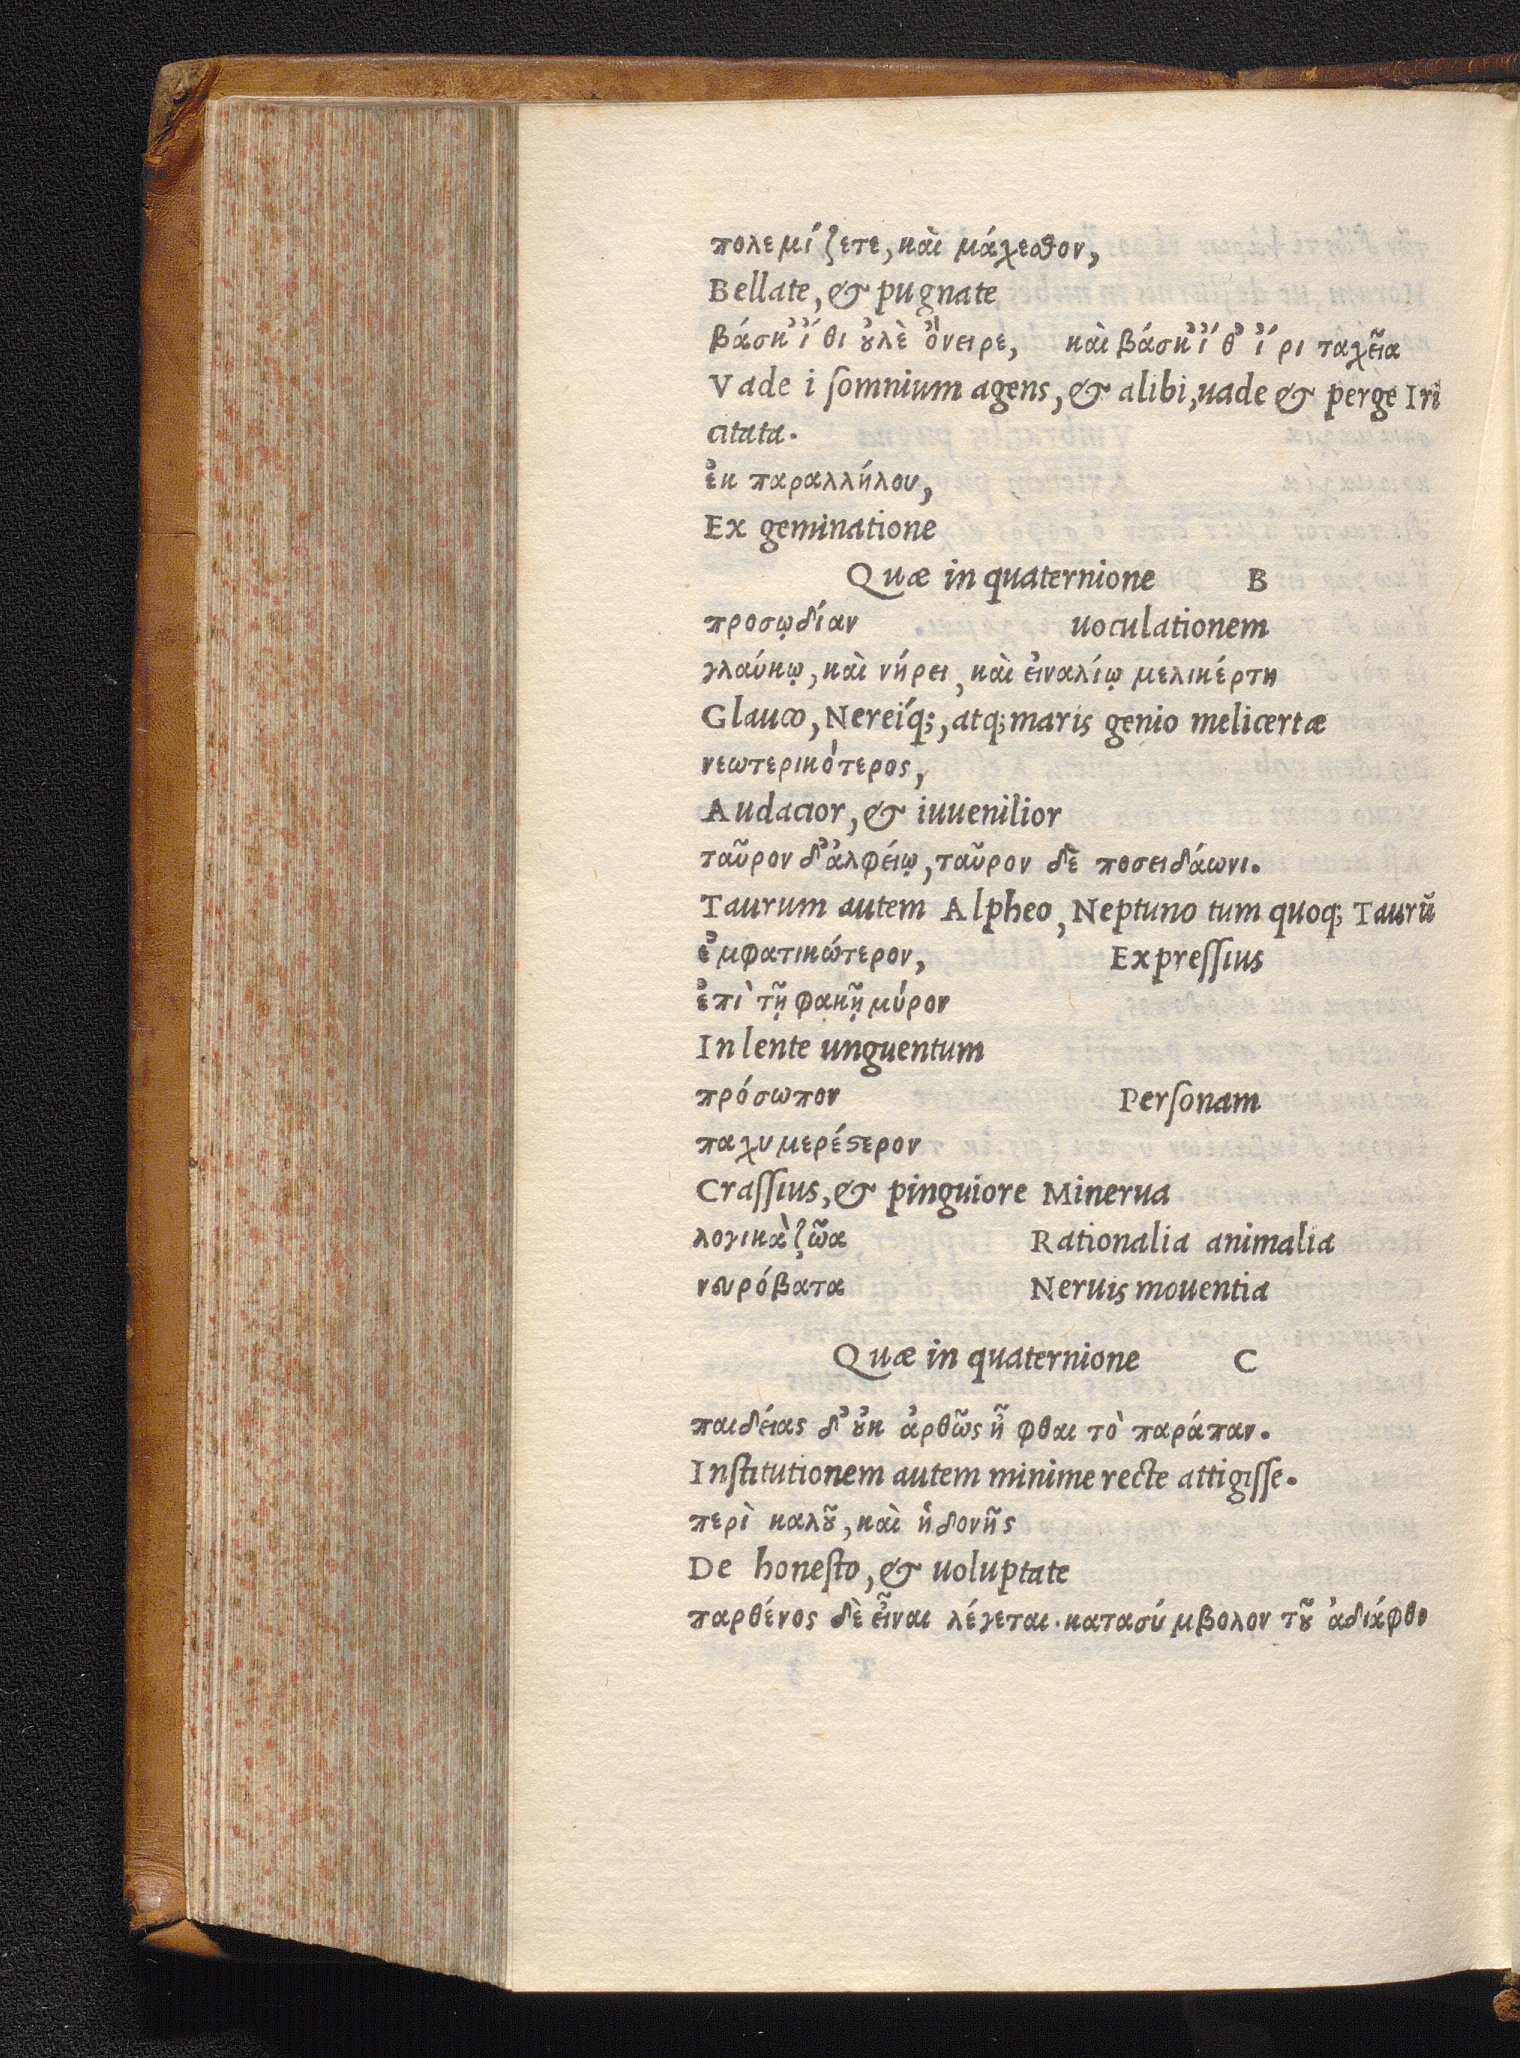 πολεμίζετε, καὶ μάχεσθον,
Bellate, & pugnate
βάσκ᾽ ἴθι οὖλὲ ὄνειρε, καὶ βάσκ᾽ ἴθ᾽ ἶρι ταχεῖα
Vade i ſomnium agens, & alibi, uade & perge Iri
citata.
ἐκ παραλλήλου,
Ex geminatione
Quæ in quaternione B
προσῳδίαν uoculationem
γλαύκῳ, καὶ νήρει, καὶ εἰναλίῳ μελικέρτη
Glauco, Nereíq;, atq; maris genio melicertæ
νεωτερικότερος,
Audacior, & iuuenilior
ταῦρον δ᾽ ἀλφείῳ, ταῦρον δὲ ποσειδάωνι.
Taurum autem Alpheo, Neptuno tum quoq; Taurũ
ἐμφατικώτερον, Expreſſius
ἐπὶ τῇ φακῇ μύρον
In lente unguentum
πρόσωπον Perſonam
παχυμερέϛερον
Craſſius, & pinguiore Minerua
λογικὰ ζῶα Rationalia animalia
νευρόβατα Neruis mouentia
Quæ in quaternione C
παιδείας δ᾽ οὐκ ἀρθῶς ἦφθαι τὸ παράπαν.
Inſtitutionem autem minime recte attigiſſe.
περὶ καλοῦ, καὶ ἡδονῆς
De honeſto, & uoluptate
παρθένος δὲ εἶναι λέγεται. κατασύμβολον τοῦ ἀδιάφθο